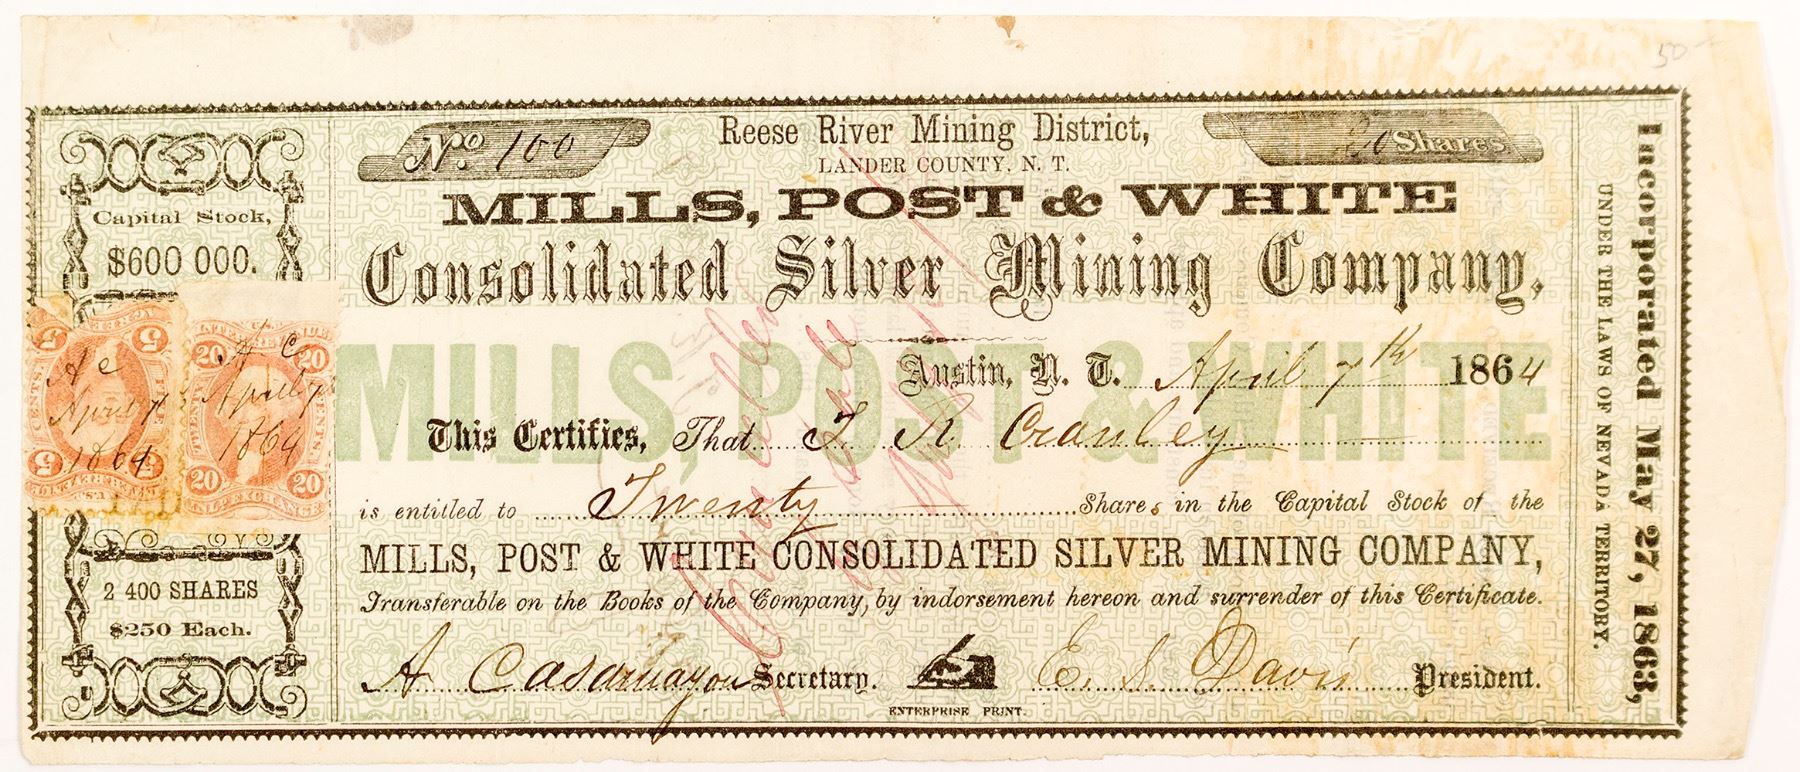 50
No. 100
Reese River Mining District,
20 Shares
LANDER COUNTY, N. T.
MILLS, POST & WHITE
Consolidated Silver Mining Company,
Capital Stock,
$600 000.
MILLS, POST & WHITE
Austin, N. T. April 7th 1864
This Certifies, That J R Cranley
is entitled to Twenty Shares in the Capital Stock of the
MILLS, POST & WHITE CONSOLIDATED SILVER MINING COMPANY,
Transferable on the Books of the Company, by indorsement hereon and surrender of this Certificate.
A Casamayou Secretary. E. S. Davis President.
ENTERPRISE PRINT.
5 5
CENTS.
A C
April 7
1864
5 5
20 20
A C
April 7
1864
TWENTY CENTS.
20 20
INL. EXCHANGE
2 400 SHARES
$250 Each.
Cancelled
Incorporated May 27, 1863,
UNDER THE LAWS OF NEVADA TERRITORY.